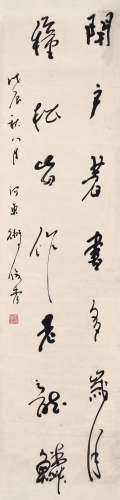 閉户著書多歲月
種松皆作老龍鱗
戊辰秋八月 河東衛俊秀